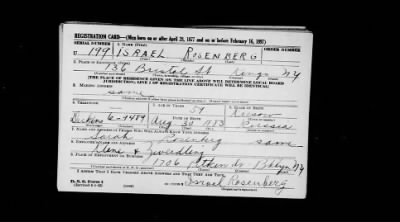 REGISTRATION CARD—(Men born on or after April 28, 1877 and on or before February 16, 1897)
SERIAL NUMBER 1. NAME (Print) ORDER NUMBER
U 199 ISRAEL ROSENBERG
2. PLACE OF RESIDENCE (Print)
136 Bristol St Kings NY
[THE PLACE OF RESIDENCE GIVEN ON THE LINE ABOVE WILL DETERMINE LOCAL BOARD
JURISDICTION; LINE 2 OF REGISTRATION CERTIFICATE WILL BE IDENTICAL]
3. MAILING ADDRESS
same
4. TELEPHONE 5. AGE IN YEARS 6. PLACE OF BIRTH
59
Dickens 6-9489 Aug 30 1883 Russia
7. NAME AND ADDRESS OF PERSON WHO WILL ALWAYS KNOW YOUR ADDRESS
Sarah Rosenberg same
8. EMPLOYER'S NAME AND ADDRESS
9. PLACE OF EMPLOYMENT OR BUSINESS
1706 Pitkin Bklyn NY
I AFFIRM THAT I HAVE VERIFIED ABOVE ANSWERS AND THAT THEY ARE TRUE.
D. S. S. Form 1
Israel Rosenberg